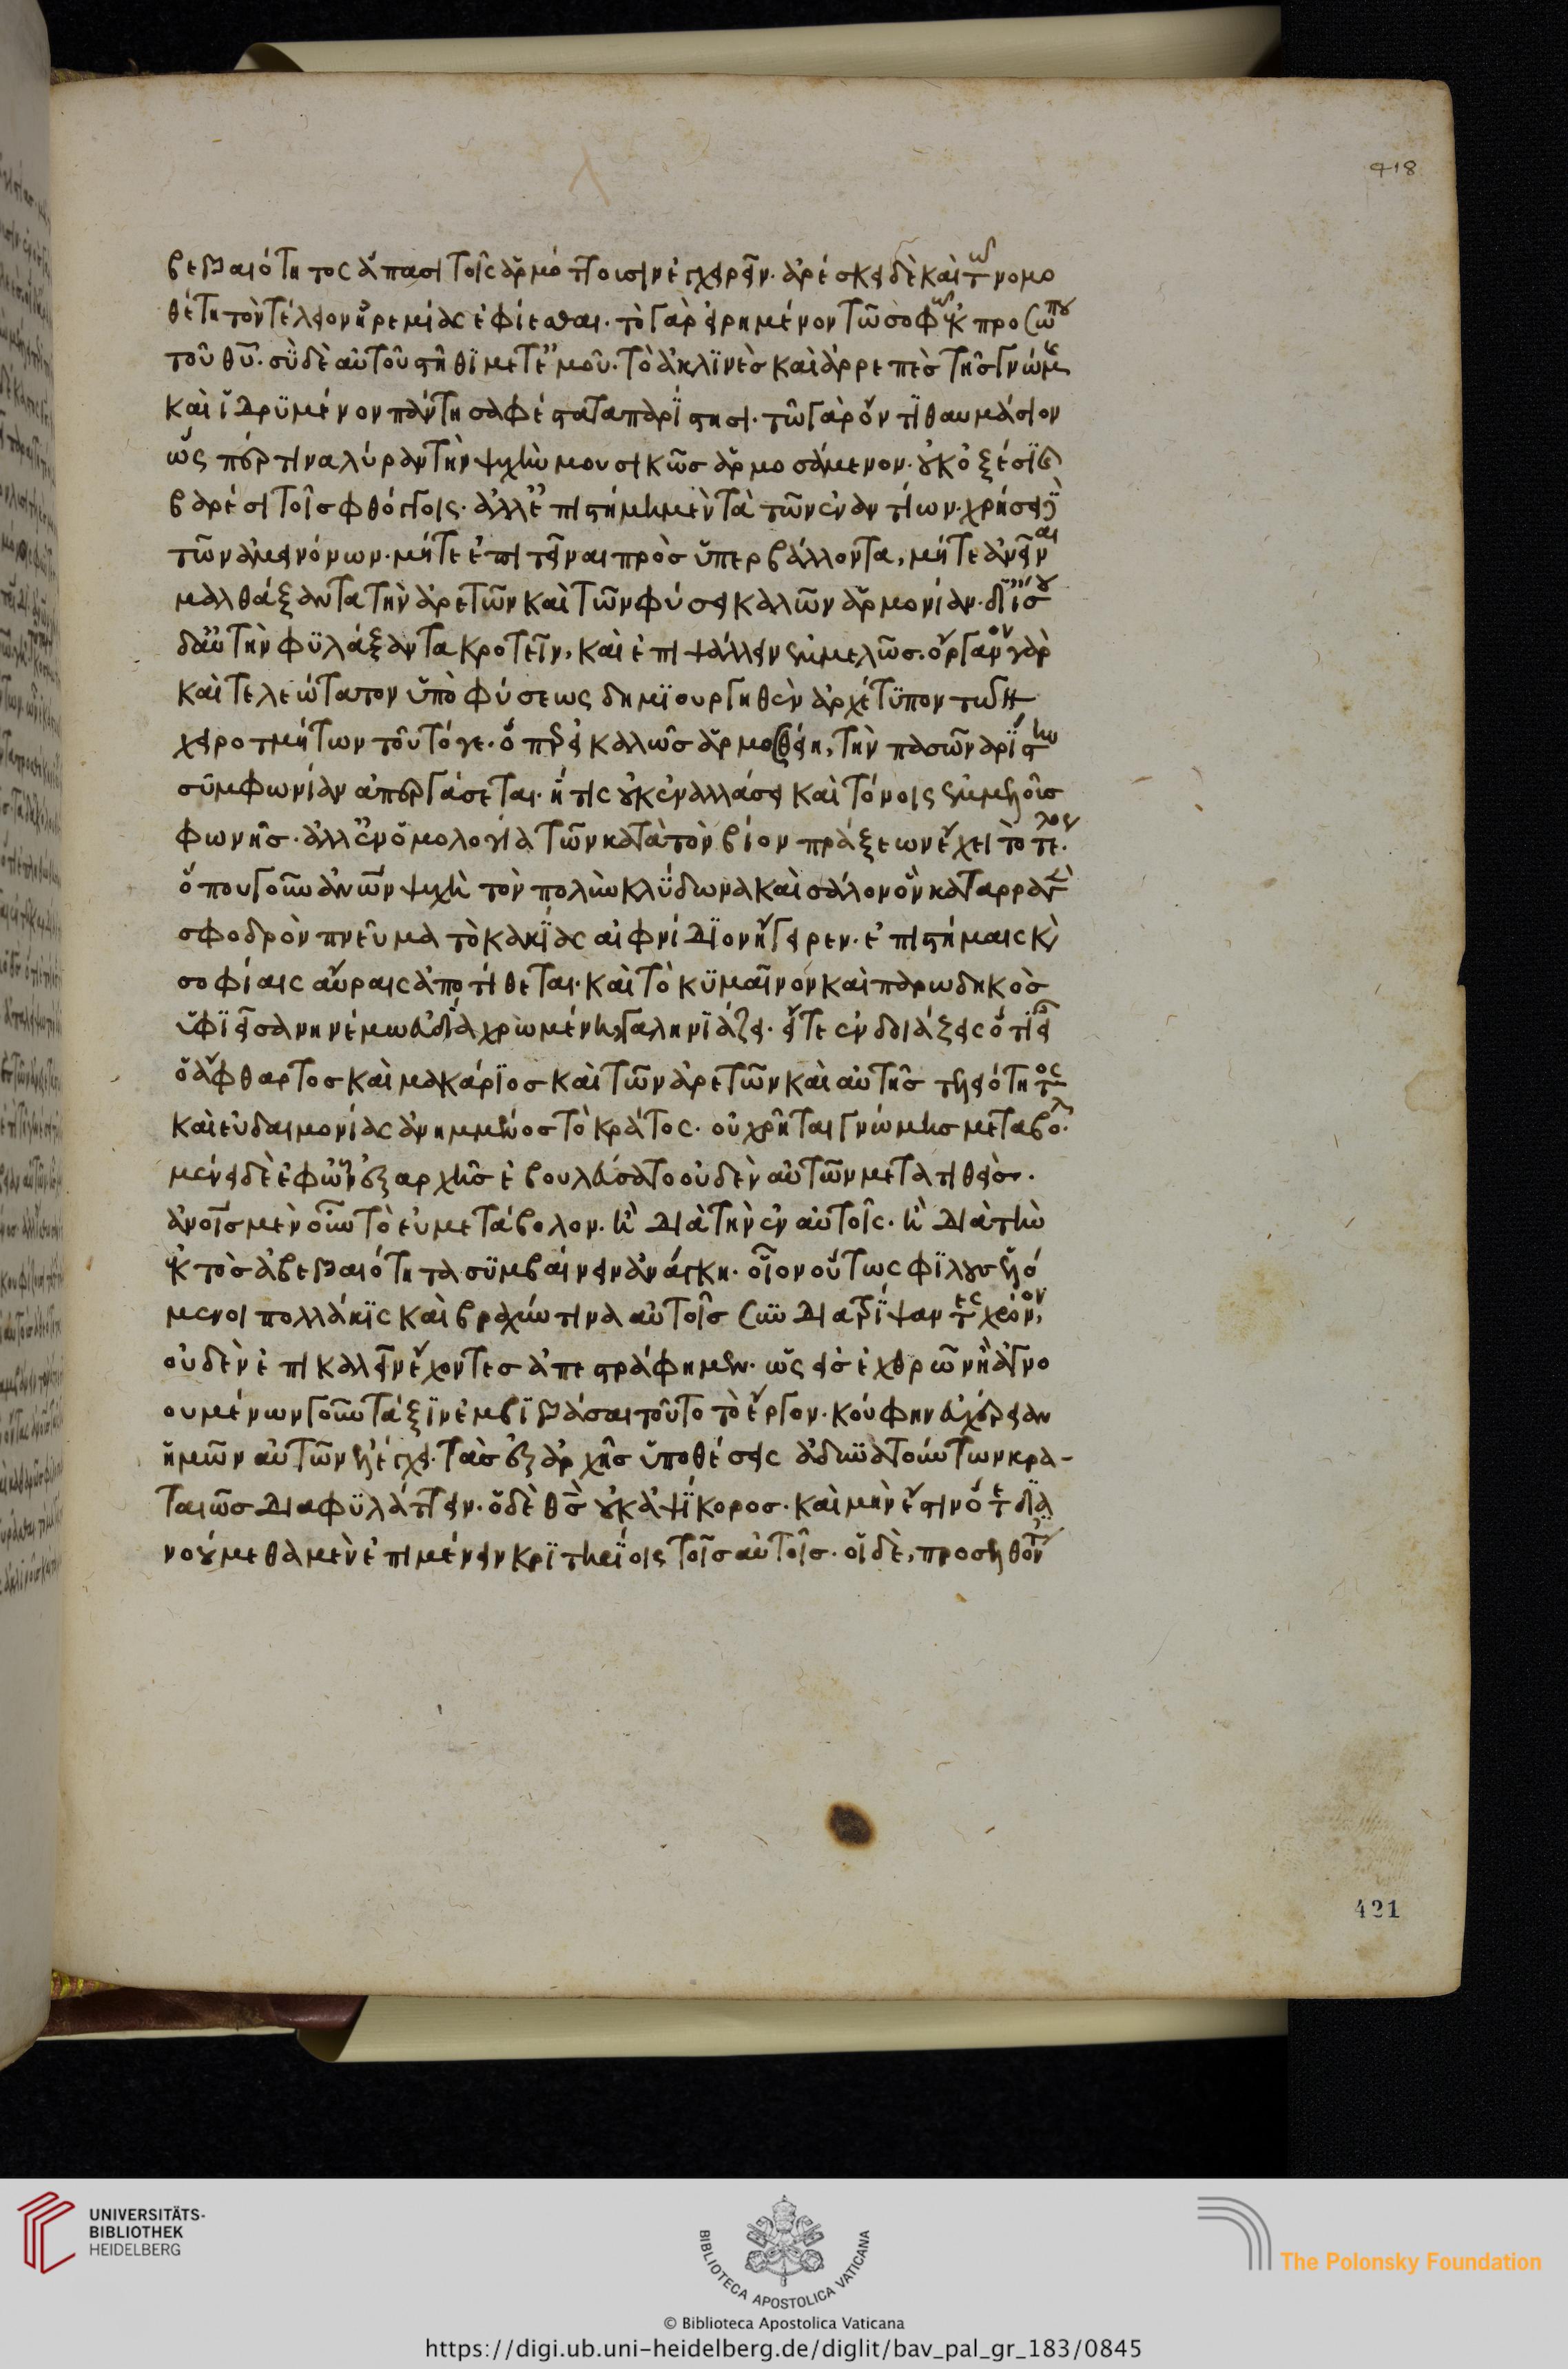 βεβαιότητος ἅπασι τοῖς ἁρμόττουσιν ἐγχειρεῖν. ἀρέσκει δὲ καὶ τῶ νομο
θέτη τὸν τέλειον ἠρεμίας ἐφίεσθαι. τὸ γὰρ εἰρημένον τῶ σοφῶ ἐκ προσώπου
τοῦ θυ. σὺ δὲ αὐτοῦ στῆθι μετ' ἐμοῦ. τὸ ἀκλινὲς καὶ ἀρρεπὲς τῆς γνώμης
καὶ ἱδρυμένον πάντη σαφέστατα παρίστησι. τῶ γὰρ ὄντι θαυμάσιον
ὥσπερ τινα λύραν τὴν ψυχὴν μουσικῶς ἁρμοσάμενον. οὐκ ὀξέσι καὶ
βαρέσι τοῖς φθόγγοις. ἀλλ' ἐπιστήμη μὲν τὰ τῶν ἐναντίων. χρήσει δὲ
τῶν ἀμεινόνων. μήτε ἐπιτεῖναι πρὸς ὑπερβάλλοντα, μήτε ἀνεῖναι
μαλθάξαντα τὴν ἀρετῶν καὶ τῶν φύσει καλῶν ἁρμονίαν. δι' ἴσου
δ' αὐτὴν φυλάξαντα κροτεῖν, καὶ ἐπιψάλλειν ἐμμελῶς. ὄργανον γὰρ
καὶ τελεώτατον ὑπὸ φύσεως δημιουργηθὲν ἀρχέτυπον τῶν
χειροτμήτων τοῦτό γε. ὅπερ εἰ καλῶς ἁρμοσθείη, τὴν πασῶν ἀρίστην
συμφωνίαν ἀπεργάσεται. ἥτις οὐκ ἐναλλάσει καὶ τόνοις ἐμμελοῖς
φωνῆς. ἀλλ' ἐν ὁμολογία τῶν κατὰ τὸν βίον πράξεων ἔχει τὸ τέλος.
ὅπου γοῦν ἀνων ψυχὴ τὸν πολὺν κλύδωνα καὶ σάλον ὃν καταρραγὲν
σφοδρὸν πνεῦμα τὸ κακίας αἰφνίδιον ἤγειρεν. ἐπιστήμαις καὶ
σοφίαις αὔραις ἀποτίθεται. καὶ τὸ κυμαῖνον καὶ παρωδηκὸς
ὑφιεῖσα νηνέμω εὐδία χρωμένη, γαληνιάζει. εἶτε ἐνδοιάζεις ὅτι
ὁ ἄφθαρτος καὶ μακάριος καὶ τῶν ἀρετῶν καὶ αὐτῆς τελειότητος
καὶ εὐδαιμονίας ἀνημμένος τὸ κράτος. οὐ χρῆται γνώμης μεταβολ.
μένει δὲ ἐφ' ὧν ἐξ ἀρχῆς ἐβουλεύσατο οὐδὲν αὐτῶν μετατιθείς.
ἀνοις μὲν οὖν τὸ εὐμετάβολον. ἢ διὰ τὴν ἐν αὐτοῖς. ἢ διὰ τὴν
ἐκτὸς ἀβεβαιότητα συμβαίνειν ἀνάγκη. οἷον οὕτως φίλους ἑλό
μενοι πολλάκις καὶ βραχύν τινα αὐτοῖς συνδιατρίψαντες χρόνον,
οὐδὲν ἐπικαλεῖν ἔχοντες ἀπεστράφημεν. ὡς εἰς ἐχθρῶν ἢ ἀγνο
ουμένων γοῦν τάξιν ἐμβιβάσαι τοῦτο τὸ ἔργον. κούφην εὐχέρειαν
ἡμῶν αὐτῶν ἐλέγχει. τὰς ἐξ ἀρχῆς ὑποθέσεις ἀδυνατούντων κρα-
ταιῶς διαφυλάττειν. ὁ δὲ θς οὐκ ἁψίκορος. καὶ μὴν ἔστιν ὅτε δια
νοούμεθα μὲν ἐπιμένειν κριτηρίοις τοῖς αὐτοῖς. οἱ δὲ, προσελθόντες
418
421
UNIVERSITÄTS-
BIBLIOTHEK
HEIDELBERG
BIBLIOTECA APOSTOLICA VATICANA
The Polonsky Foundation
© Biblioteca Apostolica Vaticana
https://digi.ub.uni-heidelberg.de/diglit/bav_pal_gr_183/0845